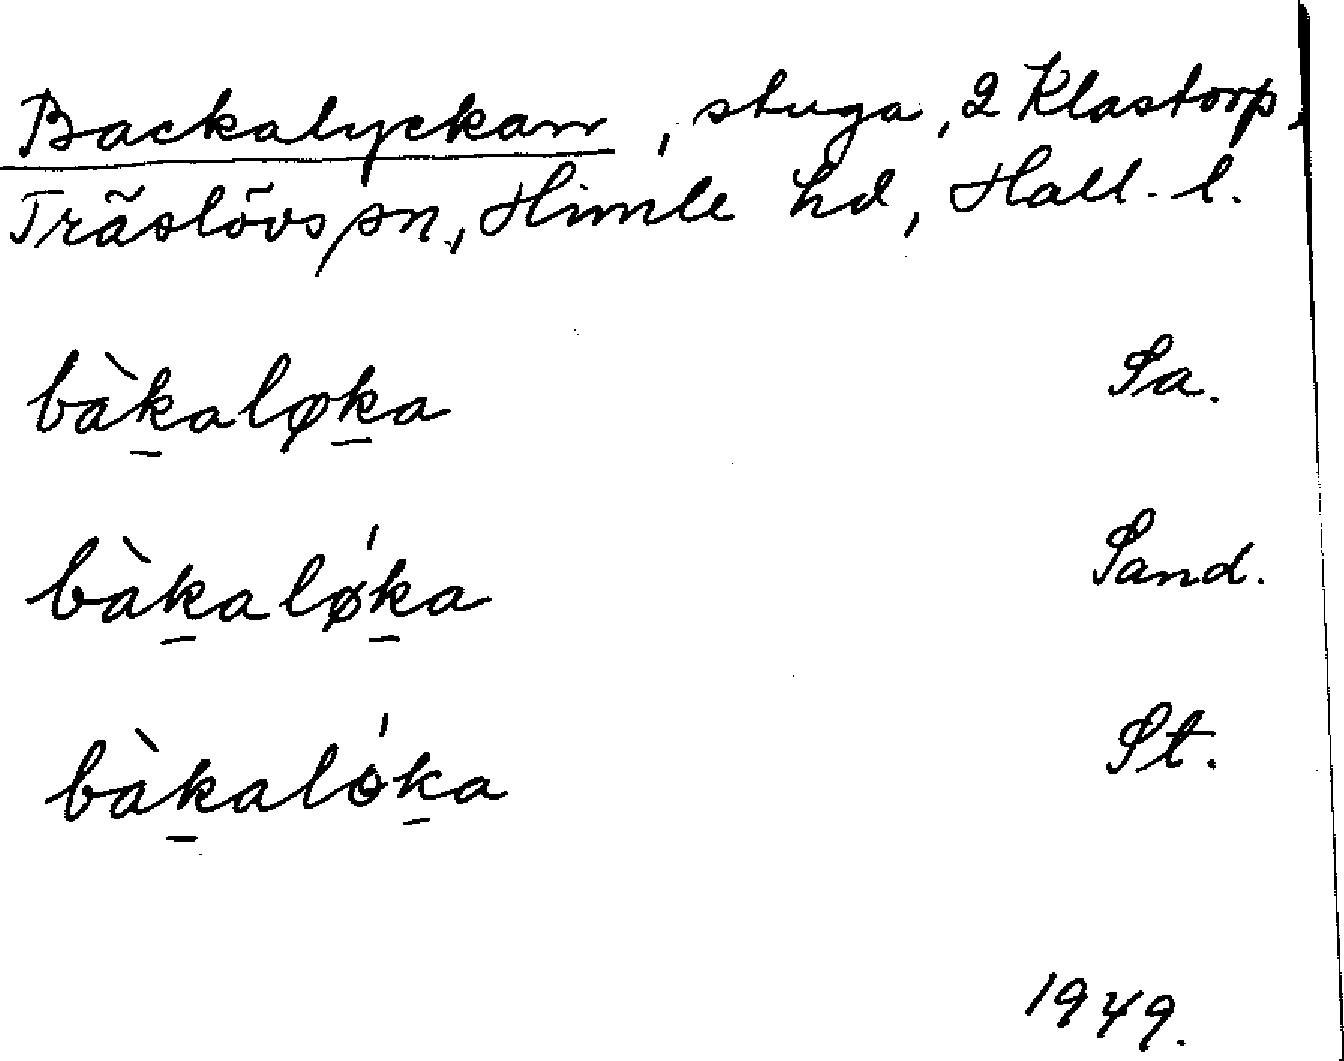 Backalyckan, stuga, 2 Klastorp,
Träslövs sn., Himle hd, Hall. l.
bàk̲aløk̲a Sa.
bàk̲alǿk̲a Sand.
bàk̲alók̲a St.
1949.